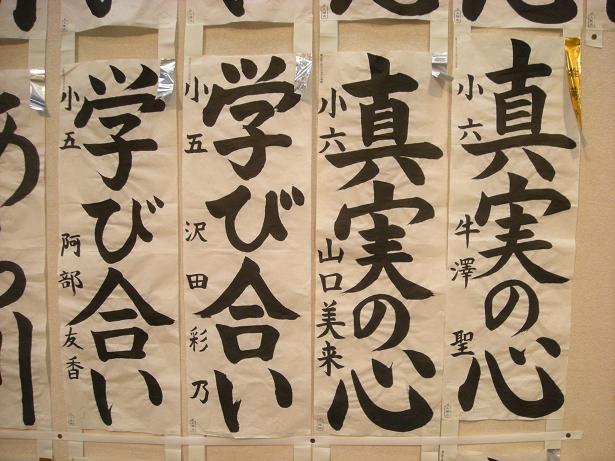 真実の心
小六 牛澤 聖
真実の心
小六 山口美来
学び合い
小五 沢田彩乃
学び合い
小五 阿部友香